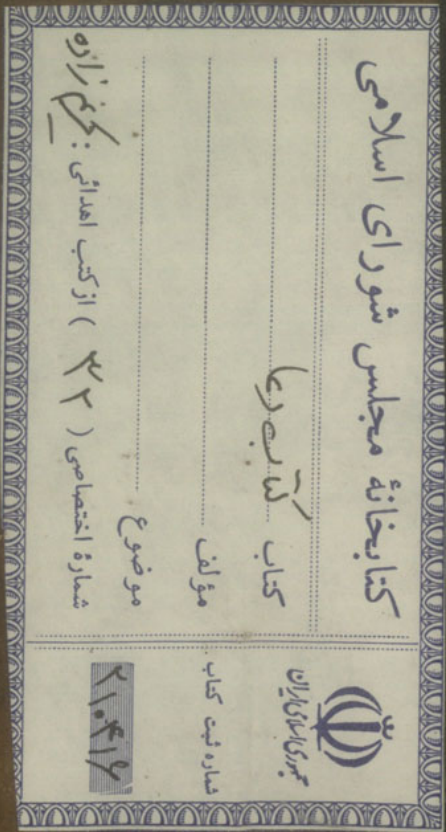 کتابخانهٔ مجلس شورای اسلامی
کتاب کتاب دعا
مؤلف
موضوع
شمارهٔ اختصاصی ( ۴۲ ) از کتب اهدائی :
جمهوری اسلامی ایران
شماره ثبت کتاب
۲۱۰۴۱۶